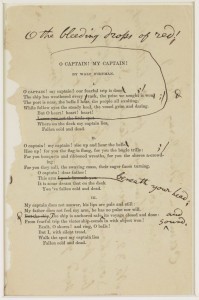 O the bleeding drops of red!
O CAPTAIN! MY CAPTAIN!
BY WALT WHITMAN.
I.
O CAPTAIN! my captain! our fearful trip is done;
The ship has weathered every rack, the prize we sought is won;
The port is near, the bells I hear, the people all exulting,
While follow eyes the steady keel, the vessel grim and daring.
But O heart! heart! heart!
Where on the deck my captain lies,
Fallen cold and dead.
II.
O captain! my captain! rise up and hear the bells;
Rise up! for you the flag is flung, for you the bugle trills:
For you bouquets and ribboned wreaths, for you the shores
For you they call, the swaying mass, their eager faces turning.
O captain! dear father!
This arm
beneath your head;
It is some dream that on the deck
You've fallen cold and dead.
III.
My captain does not answer, his lips are pale and still:
My father does not feel my arm, he has no pulse nor will.
ship is anchored safe, its voyage closed and done:
and sound,
From fearful trip the victor ship comes in with object won!
Exult, O shores! and ring, O bells!
But I, with silent tread,
Walk the spot my captain lies
Fallen cold and dead.